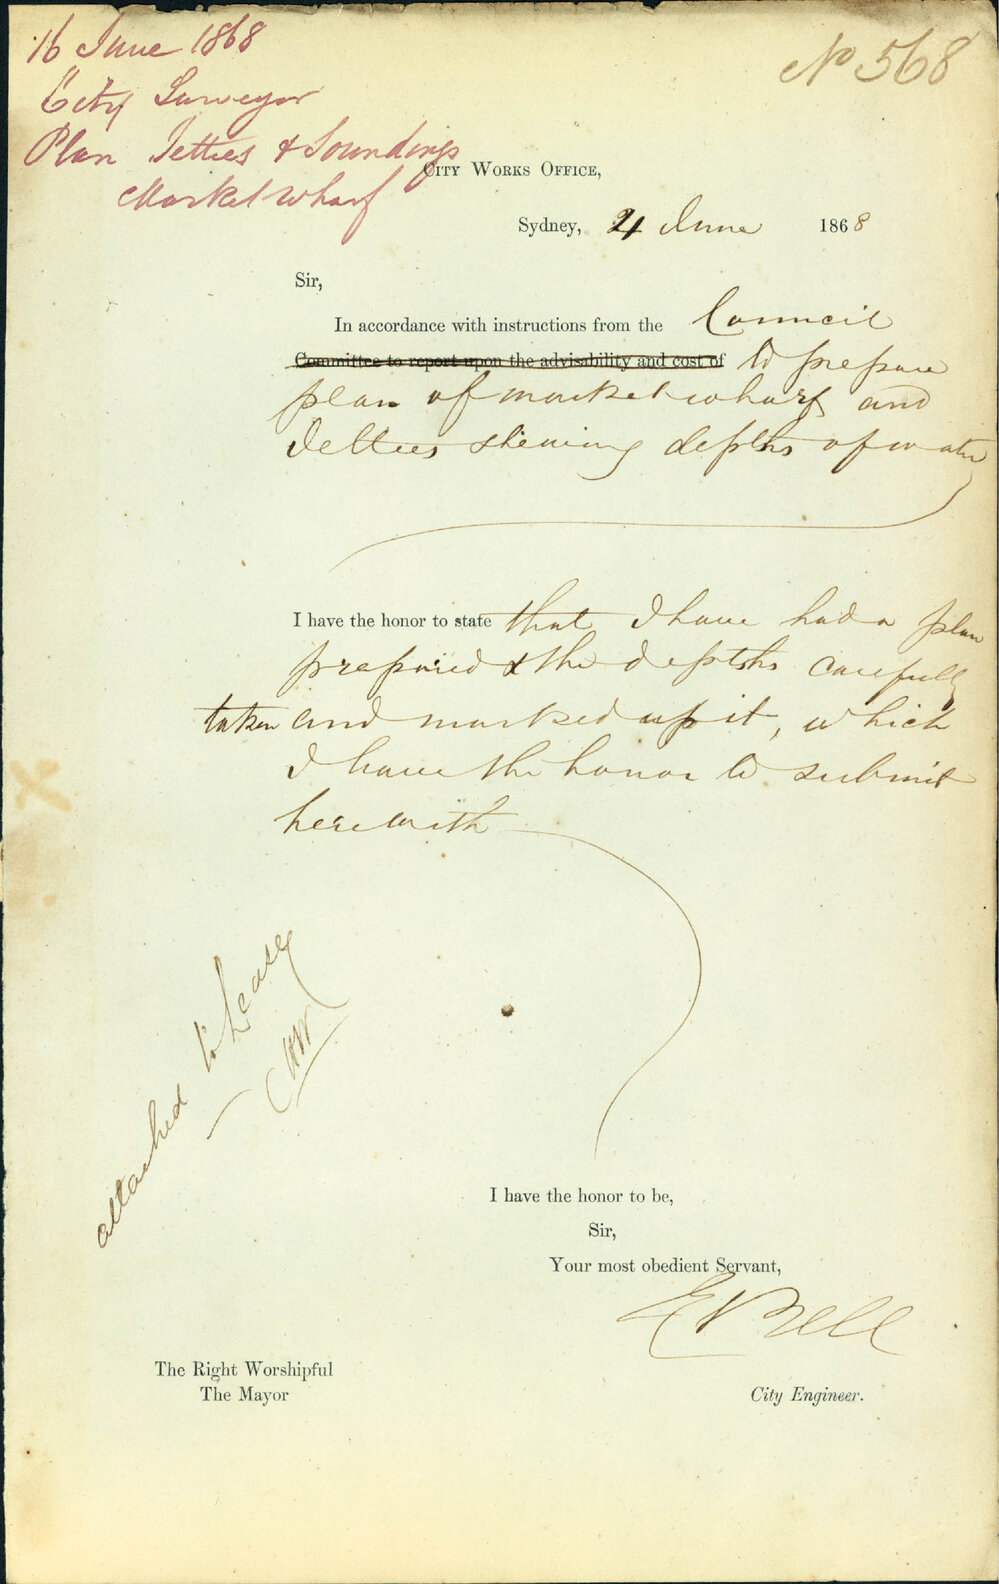 16 June 1868
City Surveyor
Plan Jetties & Soundings
Market Wharf
No 568
CITY WORKS OFFICE,
Sydney, 4 June 1868
Sir,
In accordance with instructions from the Council
Committee to report upon the advisability and cost of to prepare
plan of market wharf and
Jettees shewing depths of water
I have the honor to state that I have had a plan
prepared & the depths carefully
taken and marked up it, which
I have the honor to submit
herewith
attached to Lease
I have the honor to be,
Sir,
Your most obedient Servant,
E Bell
The Right Worshipful
The Mayor
City Engineer.